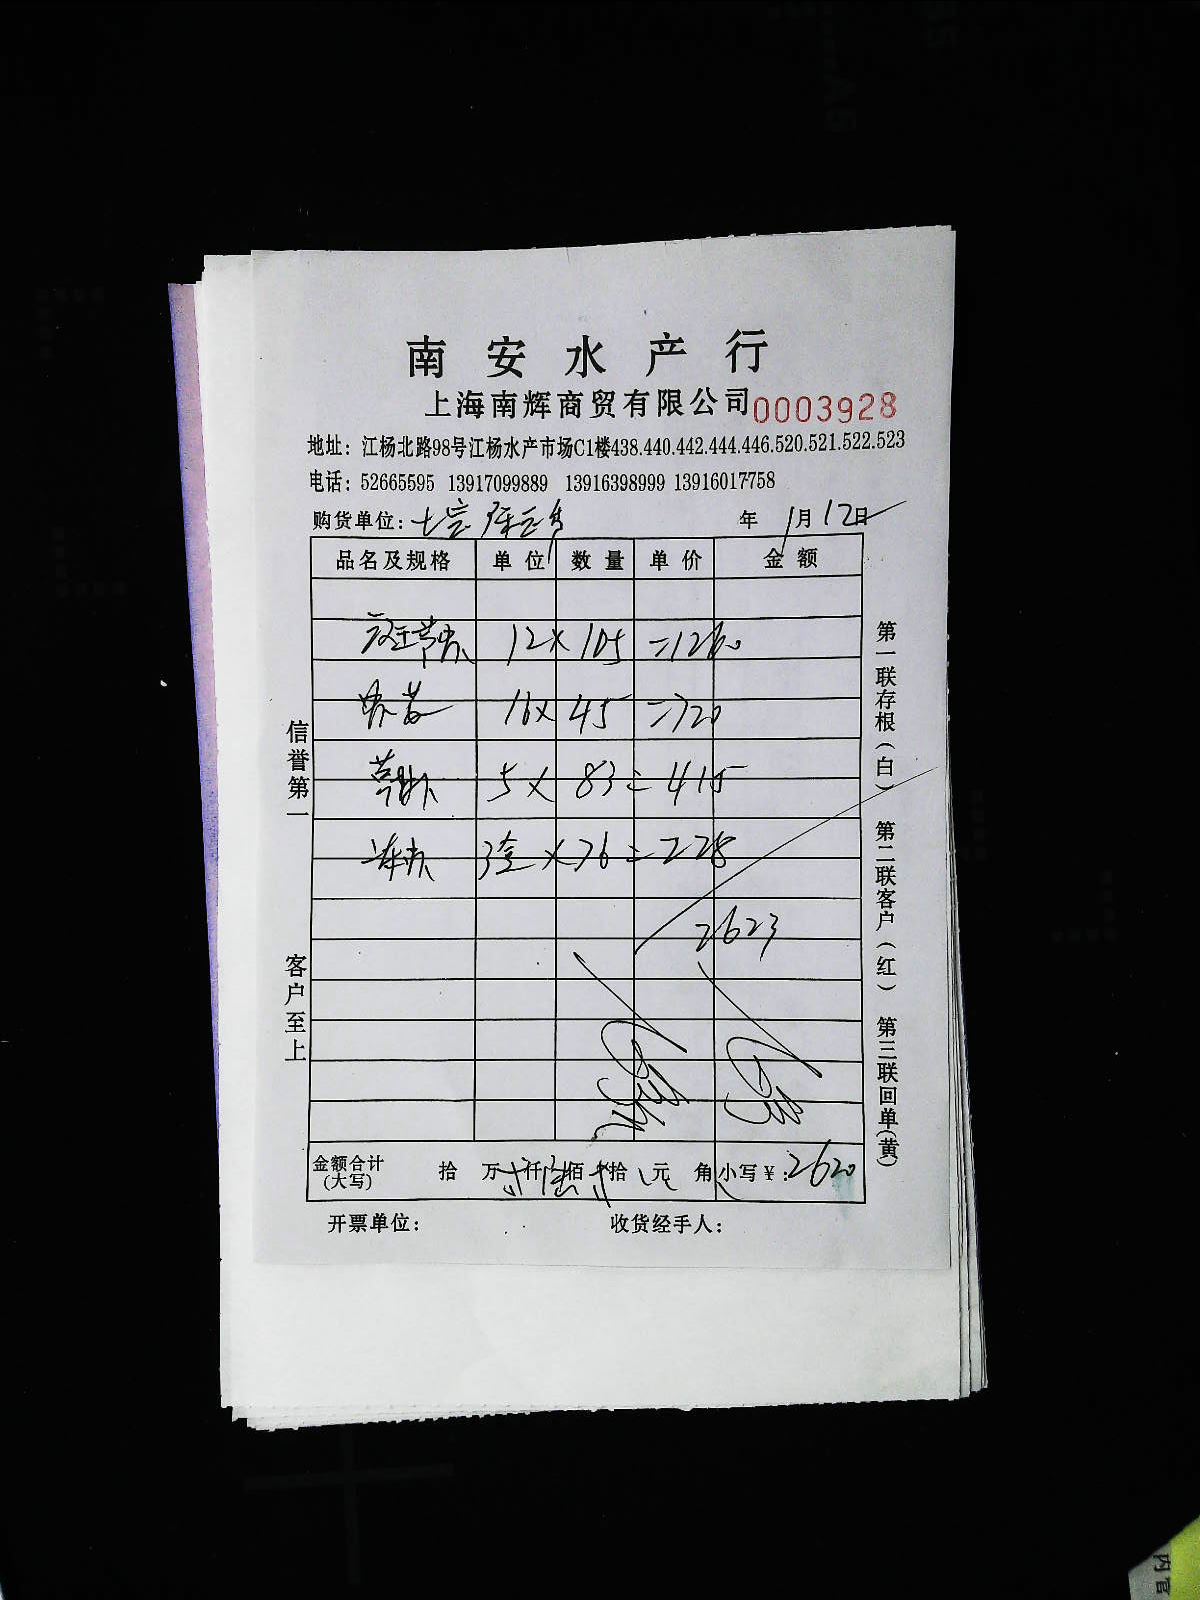 南安水产行
上海南辉商贸有限公司 0003928
地址：江杨北路98号江杨水产市场C1楼438.440.442.444.446.520.521.522.523
电话：52665595 13917099889 13916398999 13916017758
购货单位： 年 1月12日
品名及规格 单位 数量 单价 金额
12×105=1260
16×45=720
5×83=415
3×76=228
2623
金额合计(大写) 拾 万 仟 陆佰 拾 元 角 小写￥：2620
开票单位： 收货经手人：
信誉第一 客户至上
第一联存根(白) 第二联客户(红) 第三联回单(黄)
内官